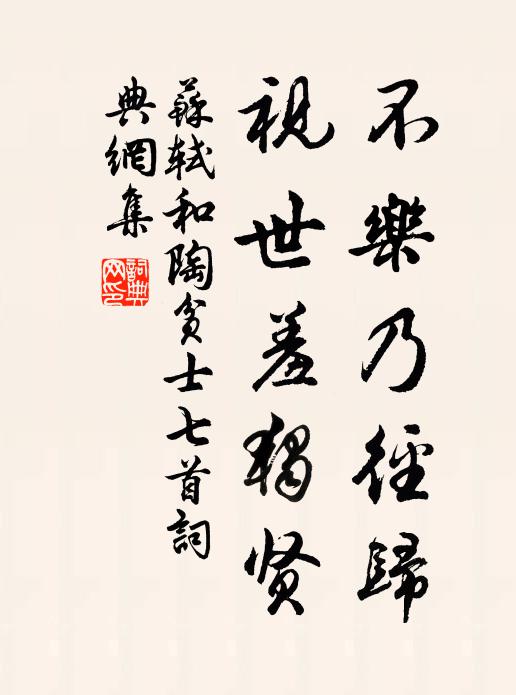 不樂乃徑歸
視世羞獨贤
蘇軾和陶貧士七首詞
典網集
詞典
网印